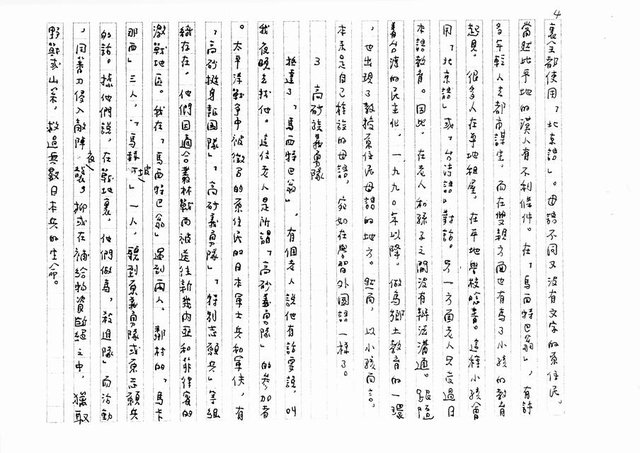 4
裏全部使用「北京語」。母語不同又沒有文字的原住民,
當然比平地的漢人有不利件。在「馬西特巴翁」,有許
多年輕人去都市謀生,而在雙親方面也有為了小孩的教育
起見,很多人在平地租屋,在平地學校唸書。這種小孩會
用「北京語」或「台灣語」對話。另一方面老人只受過日
本語教育。因此,在老人和孫子之間沒有辦法溝通。
著台灣的民主化,一九九〇年以降,做為鄉土教育的一環
,也出現了教授原住民母語的地方。然而,以小孩而言,
本來是自己種族的母語,宛如在學習外國語一樣了。
3 高砂族義勇隊
抵達了「馬西特巴翁」,有個老人說他有話要說,叫
我夜晚去找他。這位老人是所謂「高砂義勇隊」的參加者
。太平洋戰爭中被徵召的原住民的日本軍士兵和軍伕,有
「高砂挺身報國隊」,「高砂義勇隊」,「特別志願兵」等組
織存在。他們因適合叢林戰而被送往新幾內亞和菲律賓的
激戰地區。我在「馬西特巴翁」遇到兩人,鄰村的「馬卡
那西」三人,「馬 坡」一人,聽到原義勇隊或原志願兵
的話。據他們說,在戰地裏,他們做為「救進隊」而活動
,用番刀侵入敵陣夜襲,抑或在補給物資斷絕之中,獵取
野獸或山菜,救過無數日本兵的生命。